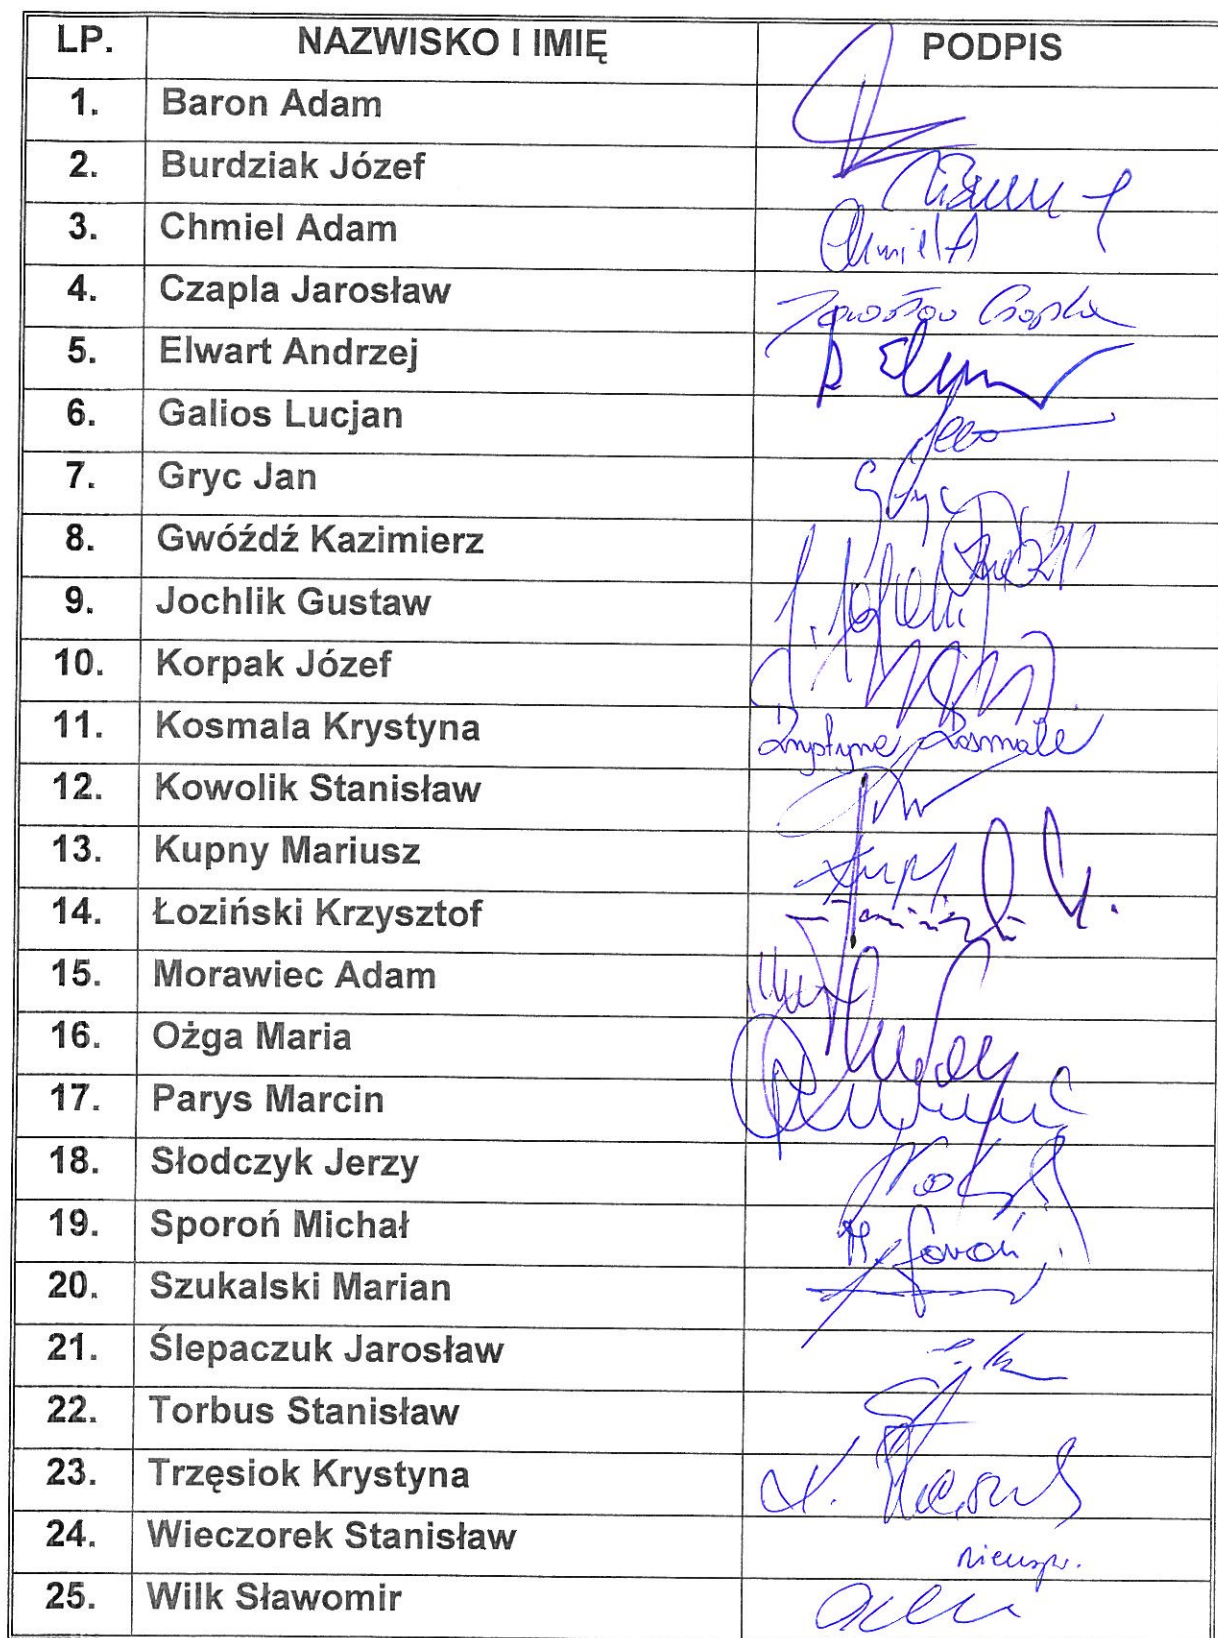 LP. NAZWISKO I IMIĘ PODPIS
1. Baron Adam
2. Burdziak Józef
3. Chmiel Adam Chmiel A
4. Czapla Jarosław Jarosław Czapla
5. Elwart Andrzej
6. Galios Lucjan
7. Gryc Jan Gryc
8. Gwóźdź Kazimierz
9. Jochlik Gustaw
10. Korpak Józef
11. Kosmala Krystyna Krystyna Kosmala
12. Kowolik Stanisław
13. Kupny Mariusz
14. Łoziński Krzysztof
15. Morawiec Adam
16. Ożga Maria
17. Parys Marcin
18. Słodczyk Jerzy
19. Sporoń Michał M. Sporoń
20. Szukalski Marian
21. Ślepaczuk Jarosław
22. Torbus Stanisław
23. Trzęsiok Krystyna
24. Wieczorek Stanisław nieuspr.
25. Wilk Sławomir